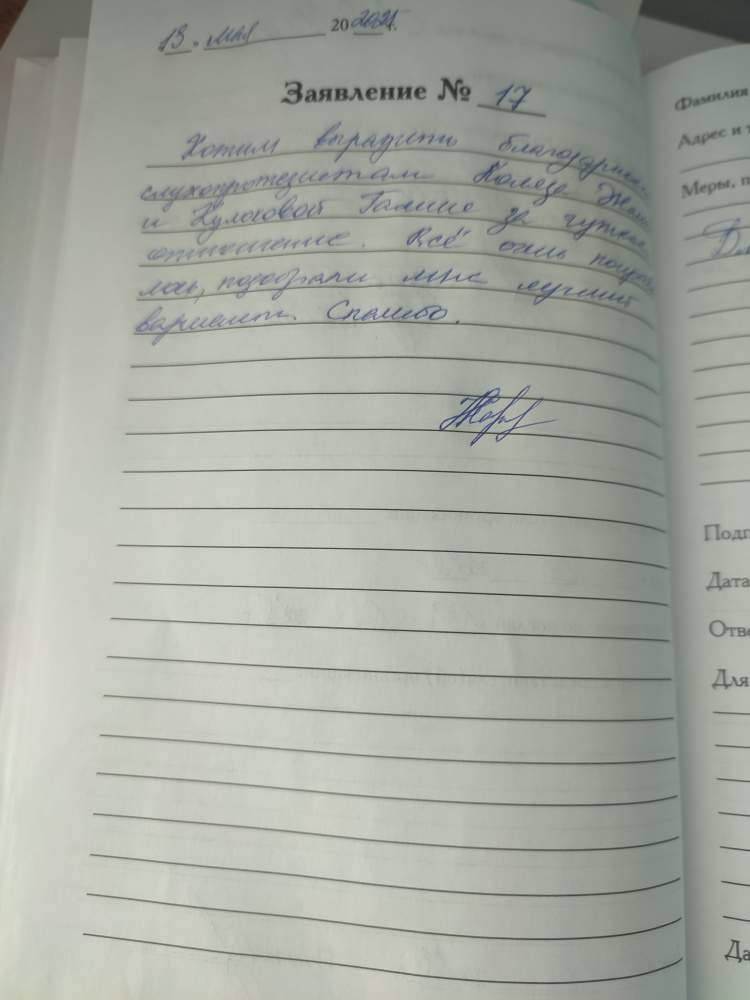 13. мая 20 2021 г.
Заявление № 17
Хотим выразить благодарнос
слухопротезистам Колезе
и Кулаковой Галине за чуткое
отношение. Всё очень понрави
лось, подобрали мне лучший
вариант. Спасибо.
Фамилия
Адрес и т
Меры, п
Подп
Дата
Отве
Для
Да